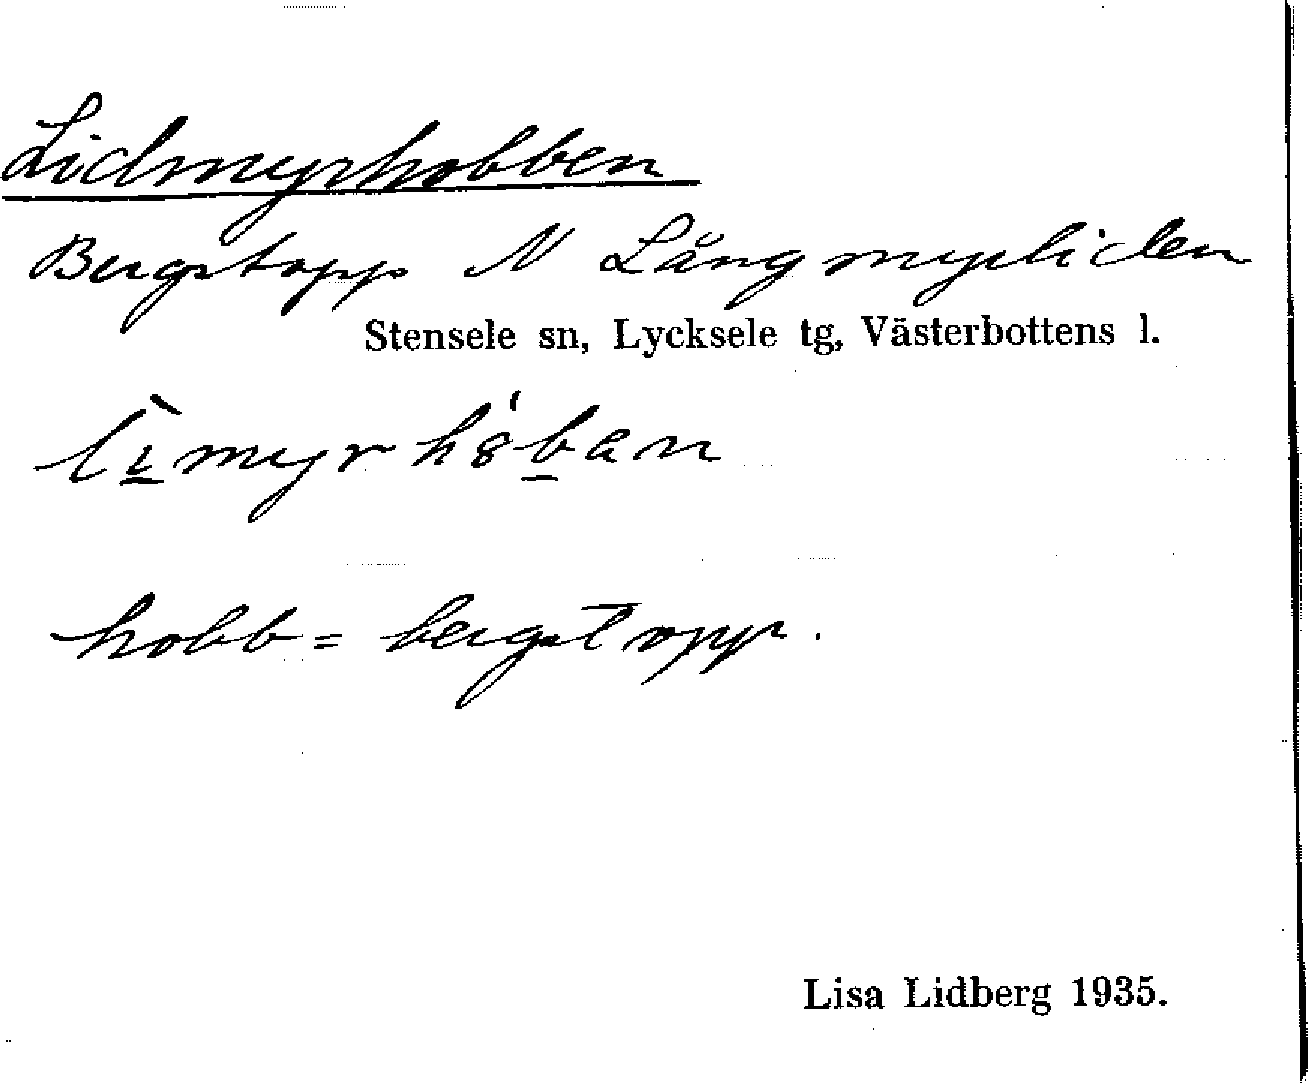 Lidmyrhobben
Bergstopp N Långmyrliden
Stensele sn, Lycksele tg, Västerbottens l.
lìmyrhȣ́ban
hobb = bergstopp.
Lisa Lidberg 1935.